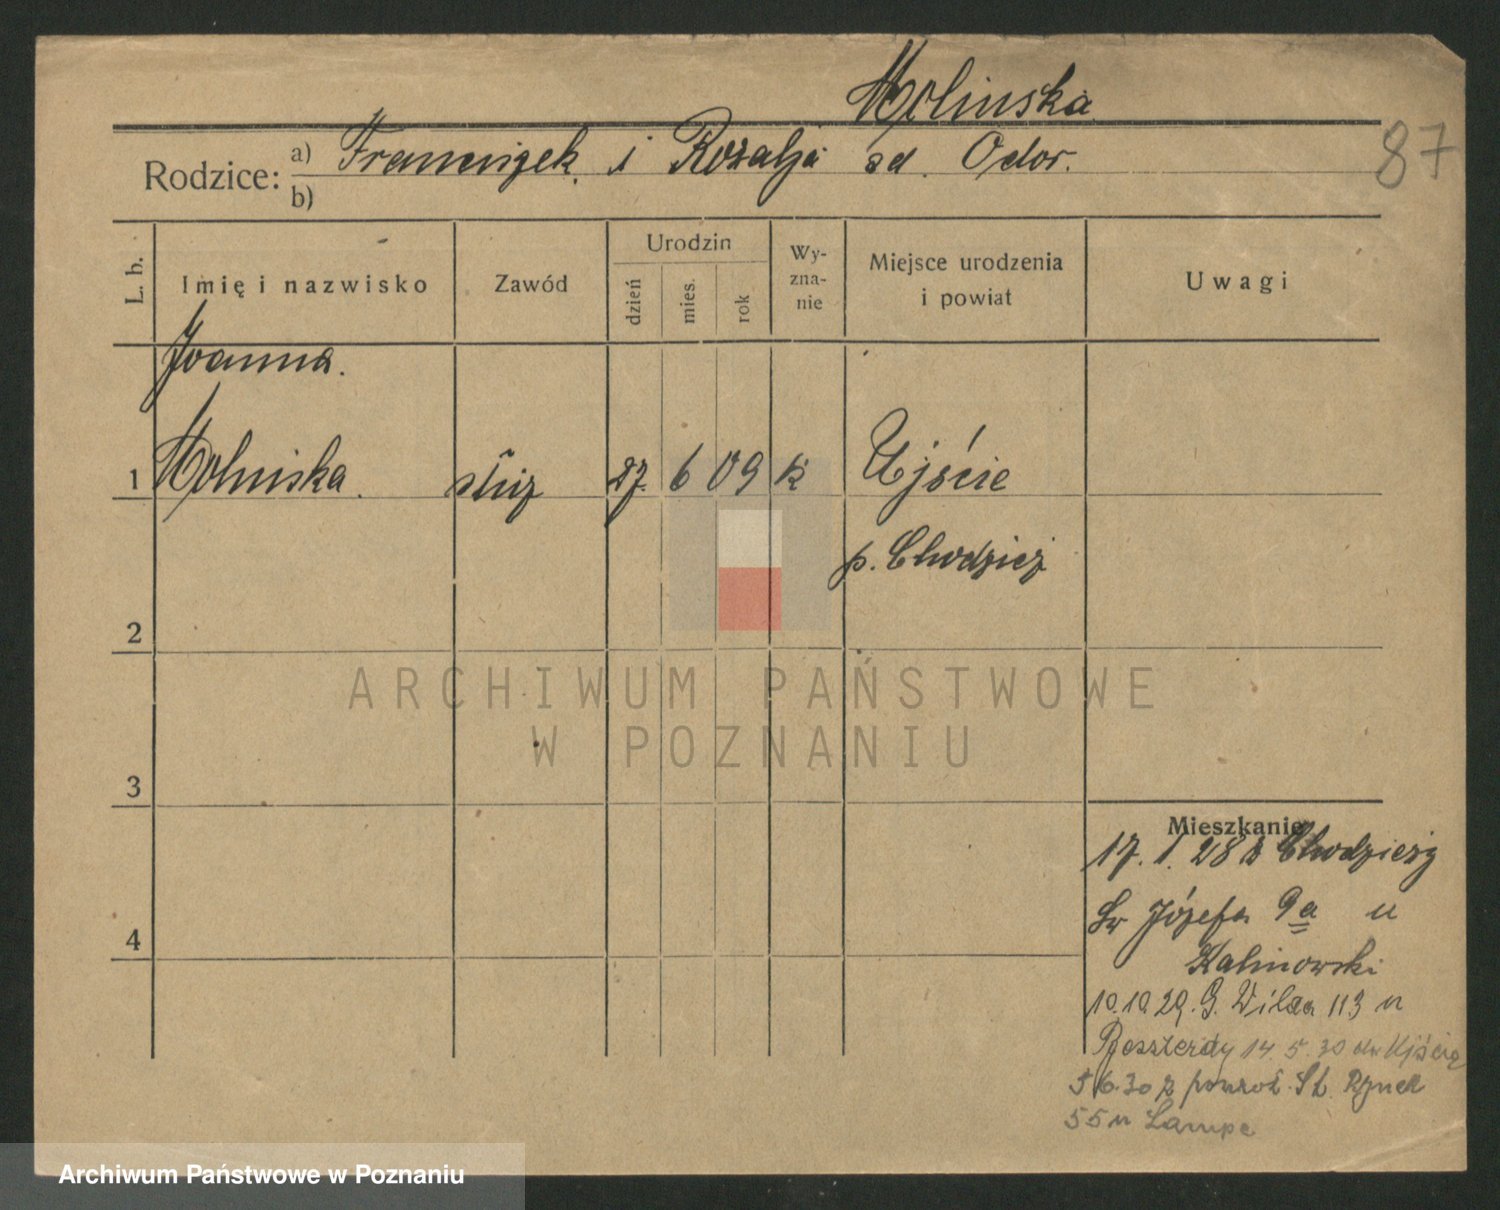 Molinska
87
Rodzice: a) Franciszek i Rozalja zd. Odor.
b)
L. b. Imię i nazwisko Zawód Urodzin dzień mies. rok Wyznanie Miejsce urodzenia i powiat Uwagi
Joanna.
1 Molinska. służ 27. 6 09 k Ujście
p. Chodzież
2
ARCHIWUM PAŃSTWOWE
W POZNANIU
3
Mieszkanie
17. 1. 28 z Chodzieży
4
Św Józefa 9a u
Kalinowski
10.10.29. G. Wilda 113 u
14. 5. 30 do Ujścia
5 6.30 z powrot. St. Rynek
55 u Lampe
Archiwum Państwowe w Poznaniu